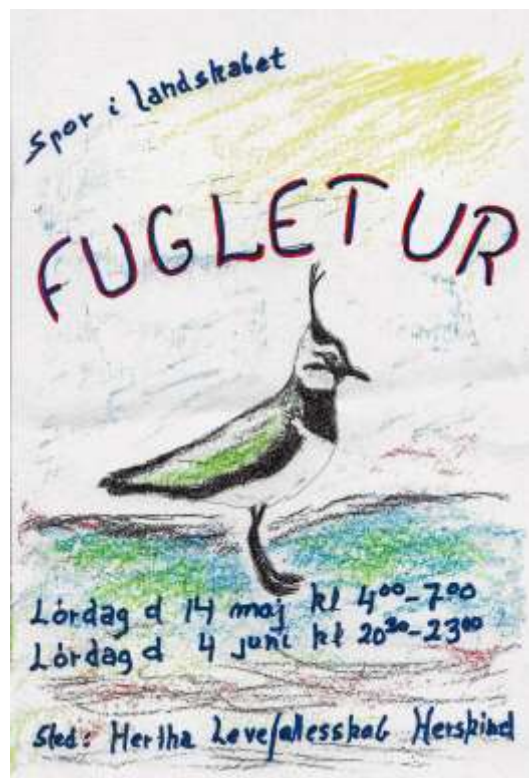 Spor i landskabet
FUGLETUR
Lórdag d 14 maj kl 4⁰⁰-7⁰⁰
Lórdag d 4 juni kl 20³⁰-23⁰⁰
Sted: Hertha Levefællesskab Herskind